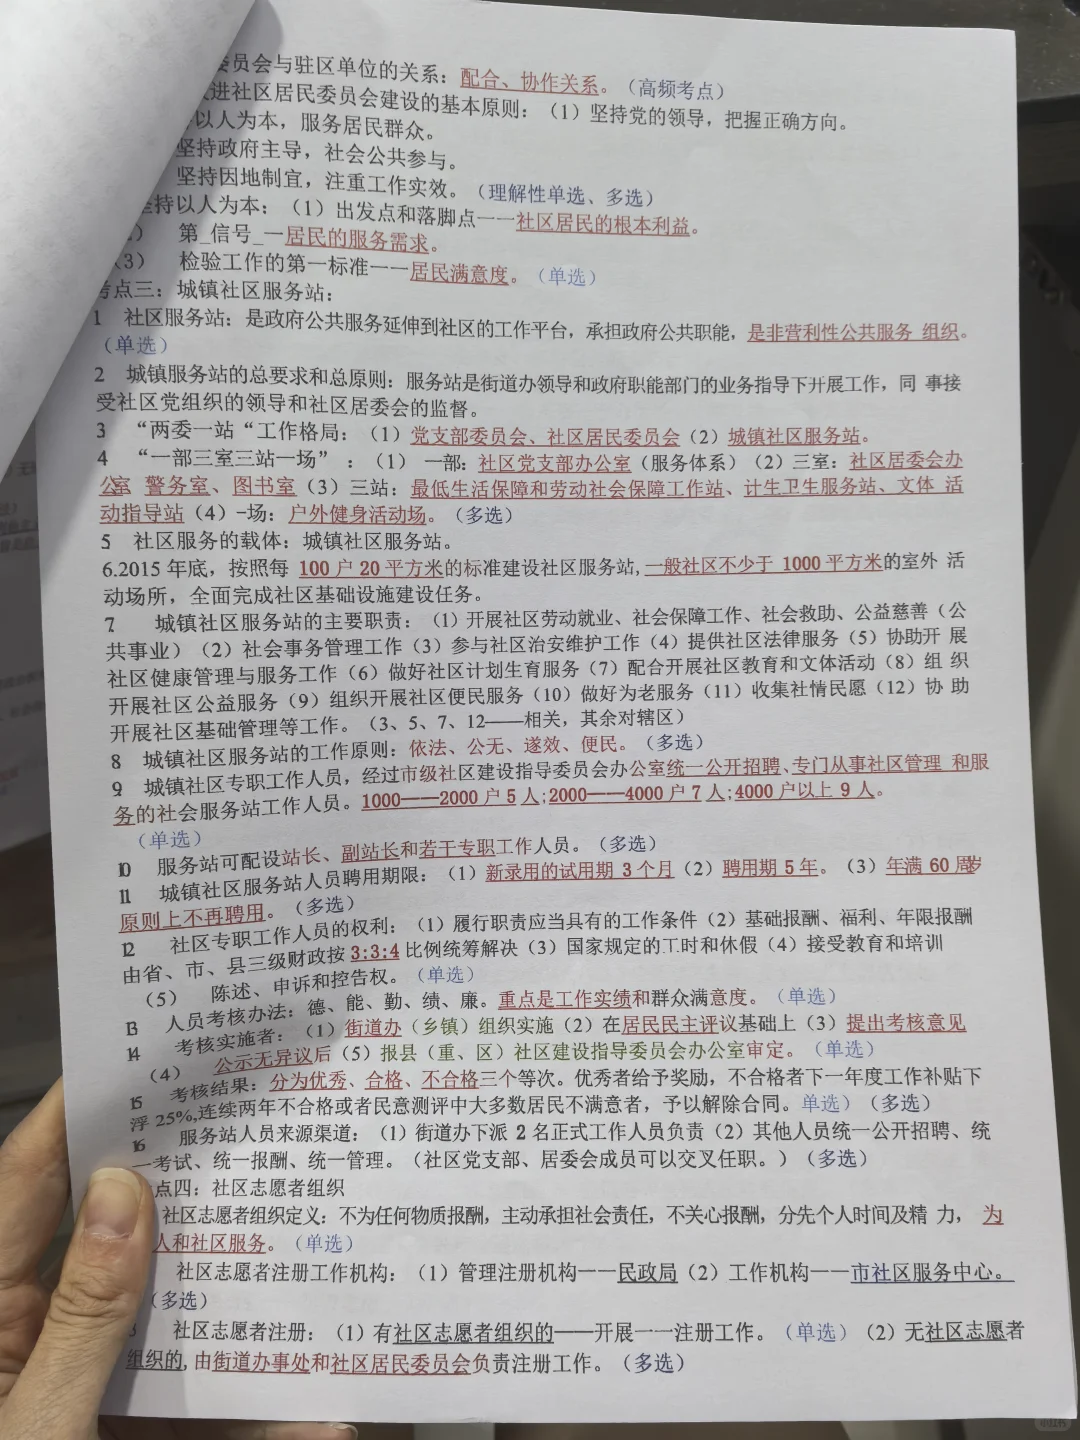 委员会与驻区单位的关系：配合、协作关系。（高频考点）
进社区居民委员会建设的基本原则：（1）坚持党的领导，把握正确方向。
以人为本，服务居民群众。
坚持政府主导，社会公共参与。
坚持因地制宜，注重工作实效。（理解性单选、多选）
坚持以人为本：（1）出发点和落脚点一一社区居民的根本利益。
）　第_信号_一居民的服务需求。
（3）　检验工作的第一标准一一居民满意度。（单选）
考点三：城镇社区服务站：
1　社区服务站：是政府公共服务延伸到社区的工作平台，承担政府公共职能，是非营利性公共服务 组织。
（单选）
2　城镇服务站的总要求和总原则：服务站是街道办领导和政府职能部门的业务指导下开展工作，同 事接
受社区党组织的领导和社区居委会的监督。
3　“两委一站“工作格局：（1）党支部委员会、社区居民委员会（2）城镇社区服务站。
4　“一部三室三站一场”：（1） 一部：社区党支部办公室（服务体系）（2）三室：社区居委会办
公室 警务室、图书室（3）三站：最低生活保障和劳动社会保障工作站、计生卫生服务站、文体 活
动指导站（4）-场：户外健身活动场。（多选）
5　社区服务的载体：城镇社区服务站。
6.2015 年底，按照每 100 户 20 平方米的标准建设社区服务站,一般社区不少于 1000 平方米的室外 活
动场所，全面完成社区基础设施建设任务。
7　城镇社区服务站的主要职责：（1）开展社区劳动就业、社会保障工作、社会救助、公益慈善（公
共事业）（2）社会事务管理工作（3）参与社区治安维护工作（4）提供社区法律服务（5）协助开 展
社区健康管理与服务工作（6）做好社区计划生育服务（7）配合开展社区教育和文体活动（8）组 织
开展社区公益服务（9）组织开展社区便民服务（10）做好为老服务（11）收集社情民愿（12）协 助
开展社区基础管理等工作。（3、5、7、12——相关，其余对辖区）
8　城镇社区服务站的工作原则：依法、公无、遂效、便民。（多选）
9　城镇社区专职工作人员，经过市级社区建设指导委员会办公室统一公开招聘、专门从事社区管理 和服
务的社会服务站工作人员。1000——2000 户 5 人;2000——4000 户 7 人;4000 户以上 9 人。
（单选）
10　服务站可配设站长、副站长和若干专职工作人员。（多选）
11　城镇社区服务站人员聘用期限：（1）新录用的试用期 3 个月（2）聘用期 5 年。（3）年满 60 周岁
原则上不再聘用。（多选）
12　社区专职工作人员的权利：（1）履行职责应当具有的工作条件（2）基础报酬、福利、年限报酬
由省、市、县三级财政按 3:3:4 比例统筹解决（3）国家规定的工时和休假（4）接受教育和培训
（5）　陈述、申诉和控告权。（单选）
13　人员考核办法：德、能、勤、绩、廉。重点是工作实绩和群众满意度。（单选）
14　考核实施者：（1）街道办（乡镇）组织实施（2）在居民民主评议基础上（3）提出考核意见
（4）　公示无异议后（5）报县（重、区）社区建设指导委员会办公室审定。（单选）
15　考核结果：分为优秀、合格、不合格三个等次。优秀者给予奖励，不合格者下一年度工作补贴下
浮 25%,连续两年不合格或者民意测评中大多数居民不满意者，予以解除合同。单选）（多选）
16　服务站人员来源渠道：（1）街道办下派 2 名正式工作人员负责（2）其他人员统一公开招聘、统
一考试、统一报酬、统一管理。（社区党支部、居委会成员可以交叉任职。）（多选）
点四：社区志愿者组织
社区志愿者组织定义：不为任何物质报酬，主动承担社会责任，不关心报酬，分先个人时间及精 力， 为
人和社区服务。（单选）
社区志愿者注册工作机构：（1）管理注册机构一一民政局（2）工作机构一一市社区服务中心。
（多选）
3　社区志愿者注册：（1）有社区志愿者组织的——开展一一注册工作。（单选）（2）无社区志愿者
组织的,由街道办事处和社区居民委员会负责注册工作。（多选）